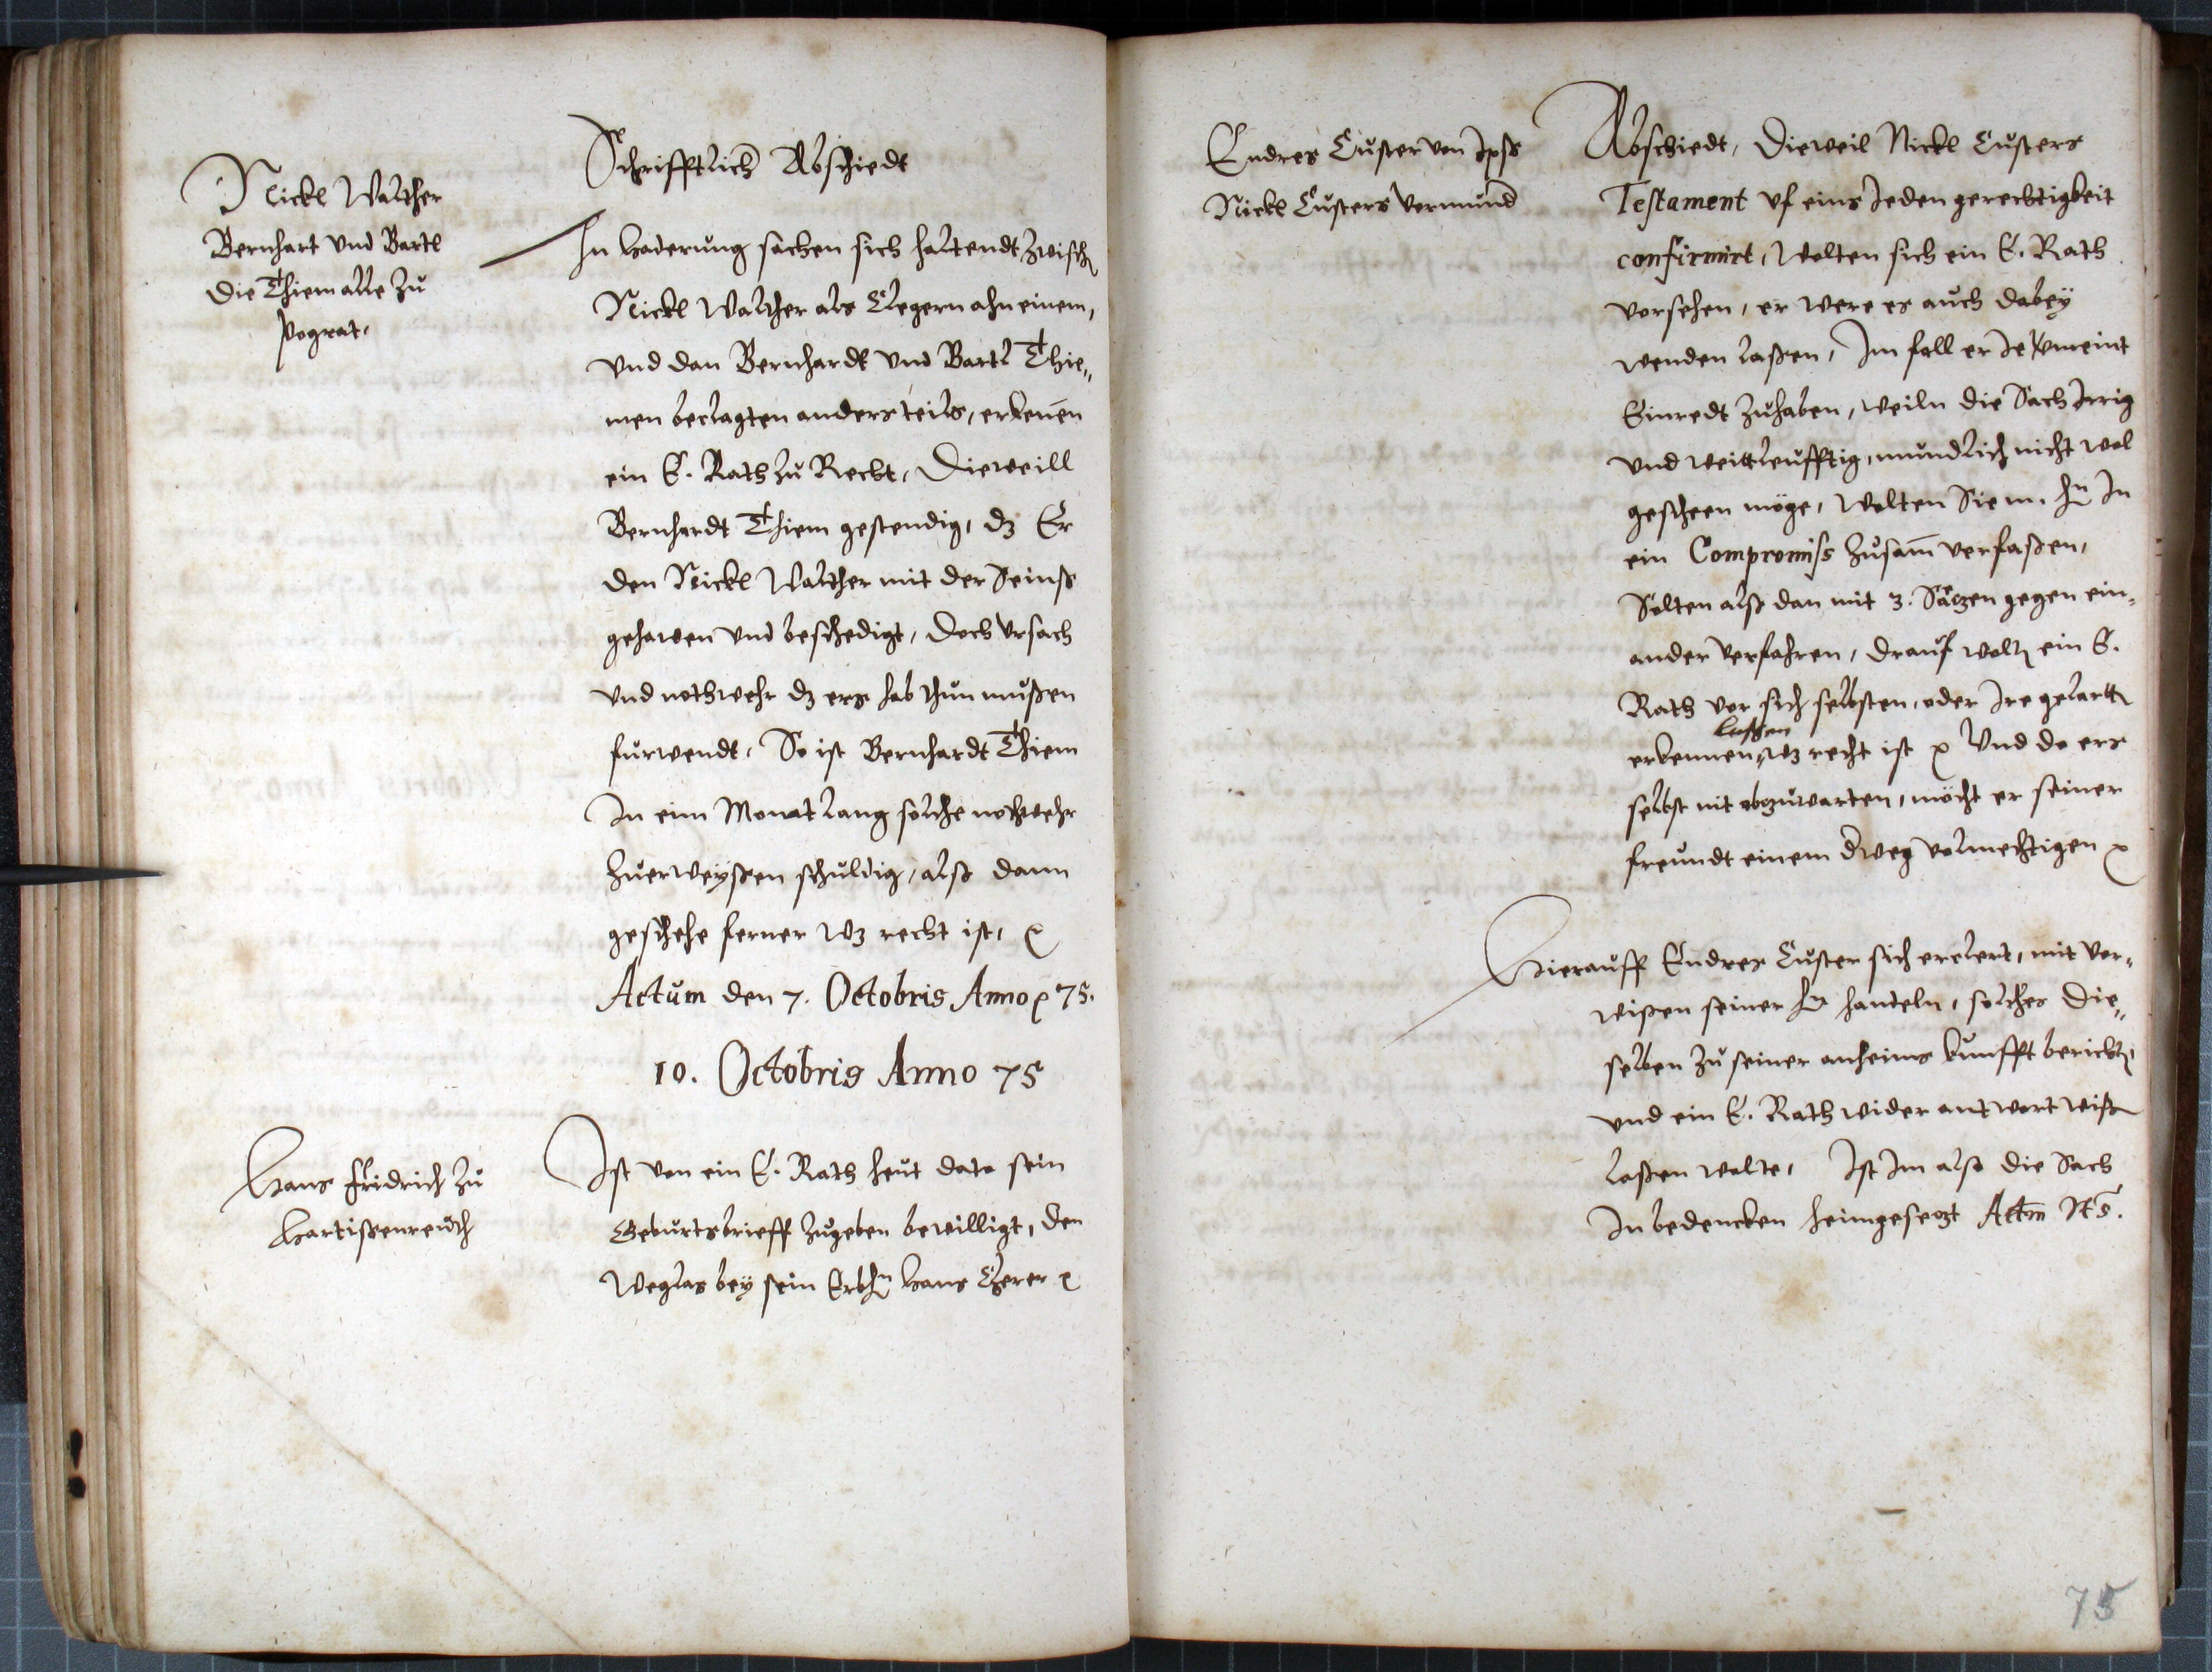 Nickl Walther
Bernhart vnd Bartl
die Thiem alle zu
pograt.
Schrifftlich Abschiedt
In haderung sachen sich haltendt zwischen
Nickl Walther als Clegern ahn einem,
vnd dan Bernhardt vnd Bartl Thie„
men beclagten anders teils, erkenen
ein E. Rath zu Recht, Dieweill
Bernhardt Thiem gestendig, dz Er
den Nickl Walther mit der
gehawen vnd beschedigt, doch vrsach
vnd nothwehr dz ers hab thun mußen
furwendt. So ist Bernhardt Thiem
In eim Monat lang solche nothwehr
zuerweyßen schuldig, alß dann
geschehe ferner wz recht ist,
Actum den 7. Octobris Anno 75.
10. Octobris Anno 75
Hans Fridrich zu
Hartißenreuth
Ist von ein E. Rath heut dato sein
Geburtsbrieff zugeben bewilligt, den
Weglas bey sein Erbhn Hans
Endres Custer von
Nickl Custers Vormund
Abschiedt, Dieweil Nickl Custers
Testament vf eins Jeden gerechtigkeit
confirmirt, Wolten sich ein E. Rath
vorsehen, er were es auch dabey
wenden laßen, Im fall er Je vmeint
Einredt zuhaben, weiln die Sach Irrig
vnd weittleufftig, mundlich nicht wol
gescheen möge, Wolten Sie m. hn In
ein Compromiss zusam verfaßen,
Solten alß dan mit 3. Säczen gegen ein„
ander verfahren, drauf woltn ein E.
Rath vor sich selbsten, oder Ire gelartn
laßen
erkennen, wz recht ist Vnd do ers
selbst nit abzuwarten, möcht er seiner
freundt einem volmechtigen
Hierauff Endres Custer sich erclert, mit vor„
wißen seiner hn handeln, solches die„
selben zu seiner anheims kunfft berichtn,
vnd ein E. Rath wider antwort wißn
laßen wolte, Ist Im also die Sach
In bedencken heimgesetzt Actm
75